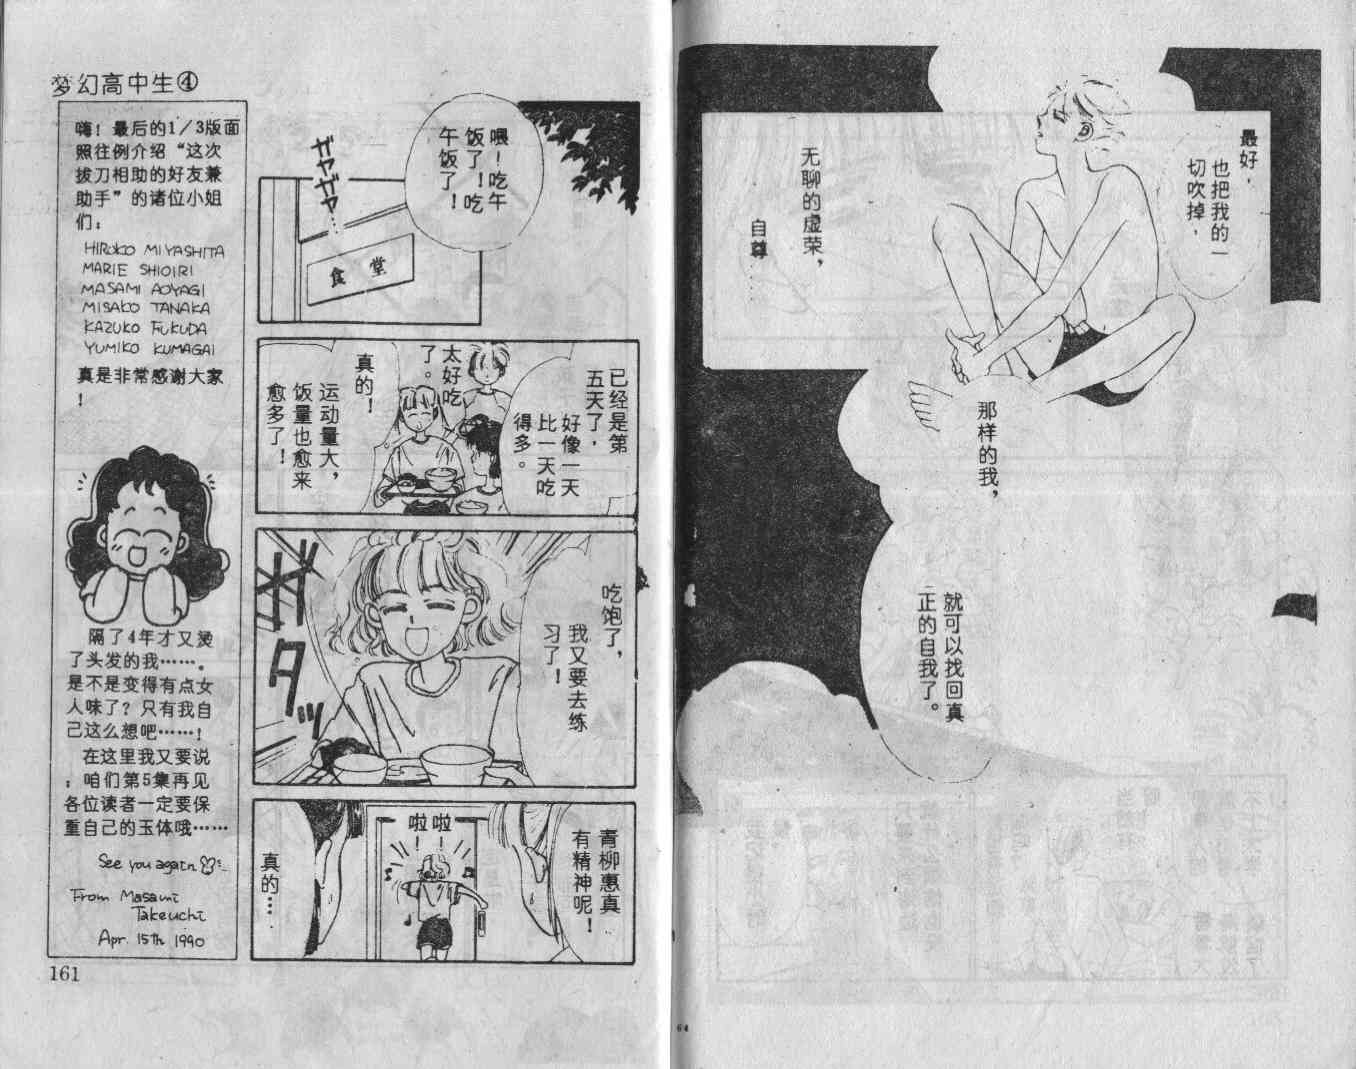 梦幻高中生④
嗨！最后的1/3版面
照往例介绍“这次
拔刀相助的好友兼
助手”的诸位小姐
们：
HIROKO MIYASHITA
MARIE SHIOIRI
MASAMI AOYAGI
MISAKO TANAKA
KAZUKO FUKUDA
YUMIKO KUMAGAI
真是非常感谢大家
！
隔了4年才又烫
了头发的我……。
是不是变得有点女
人味了？只有我自
己这么想吧……！
在这里我又要说
：咱们第5集再见
各位读者一定要保
重自己的玉体哦……
See you again
From Masami
Takeuchi
Apr. 15th 1990
161
喂！吃午
饭了！吃
午饭了！
ガヤガヤ…
食堂
已经是第
五天了，
好像一天
比一天吃
得多。
太好吃
了。
真的！
运动量大，
饭量也愈来
愈多了！
吃饱了，
我又要去练
习了！
ガタッ
青柳惠真
有精神呢！
啦啦
！！
真的…
最好，
也把我的一
切吹掉，
无聊的虚荣，
自尊……
那样的我，
就可以找回真
正的自我了。
64